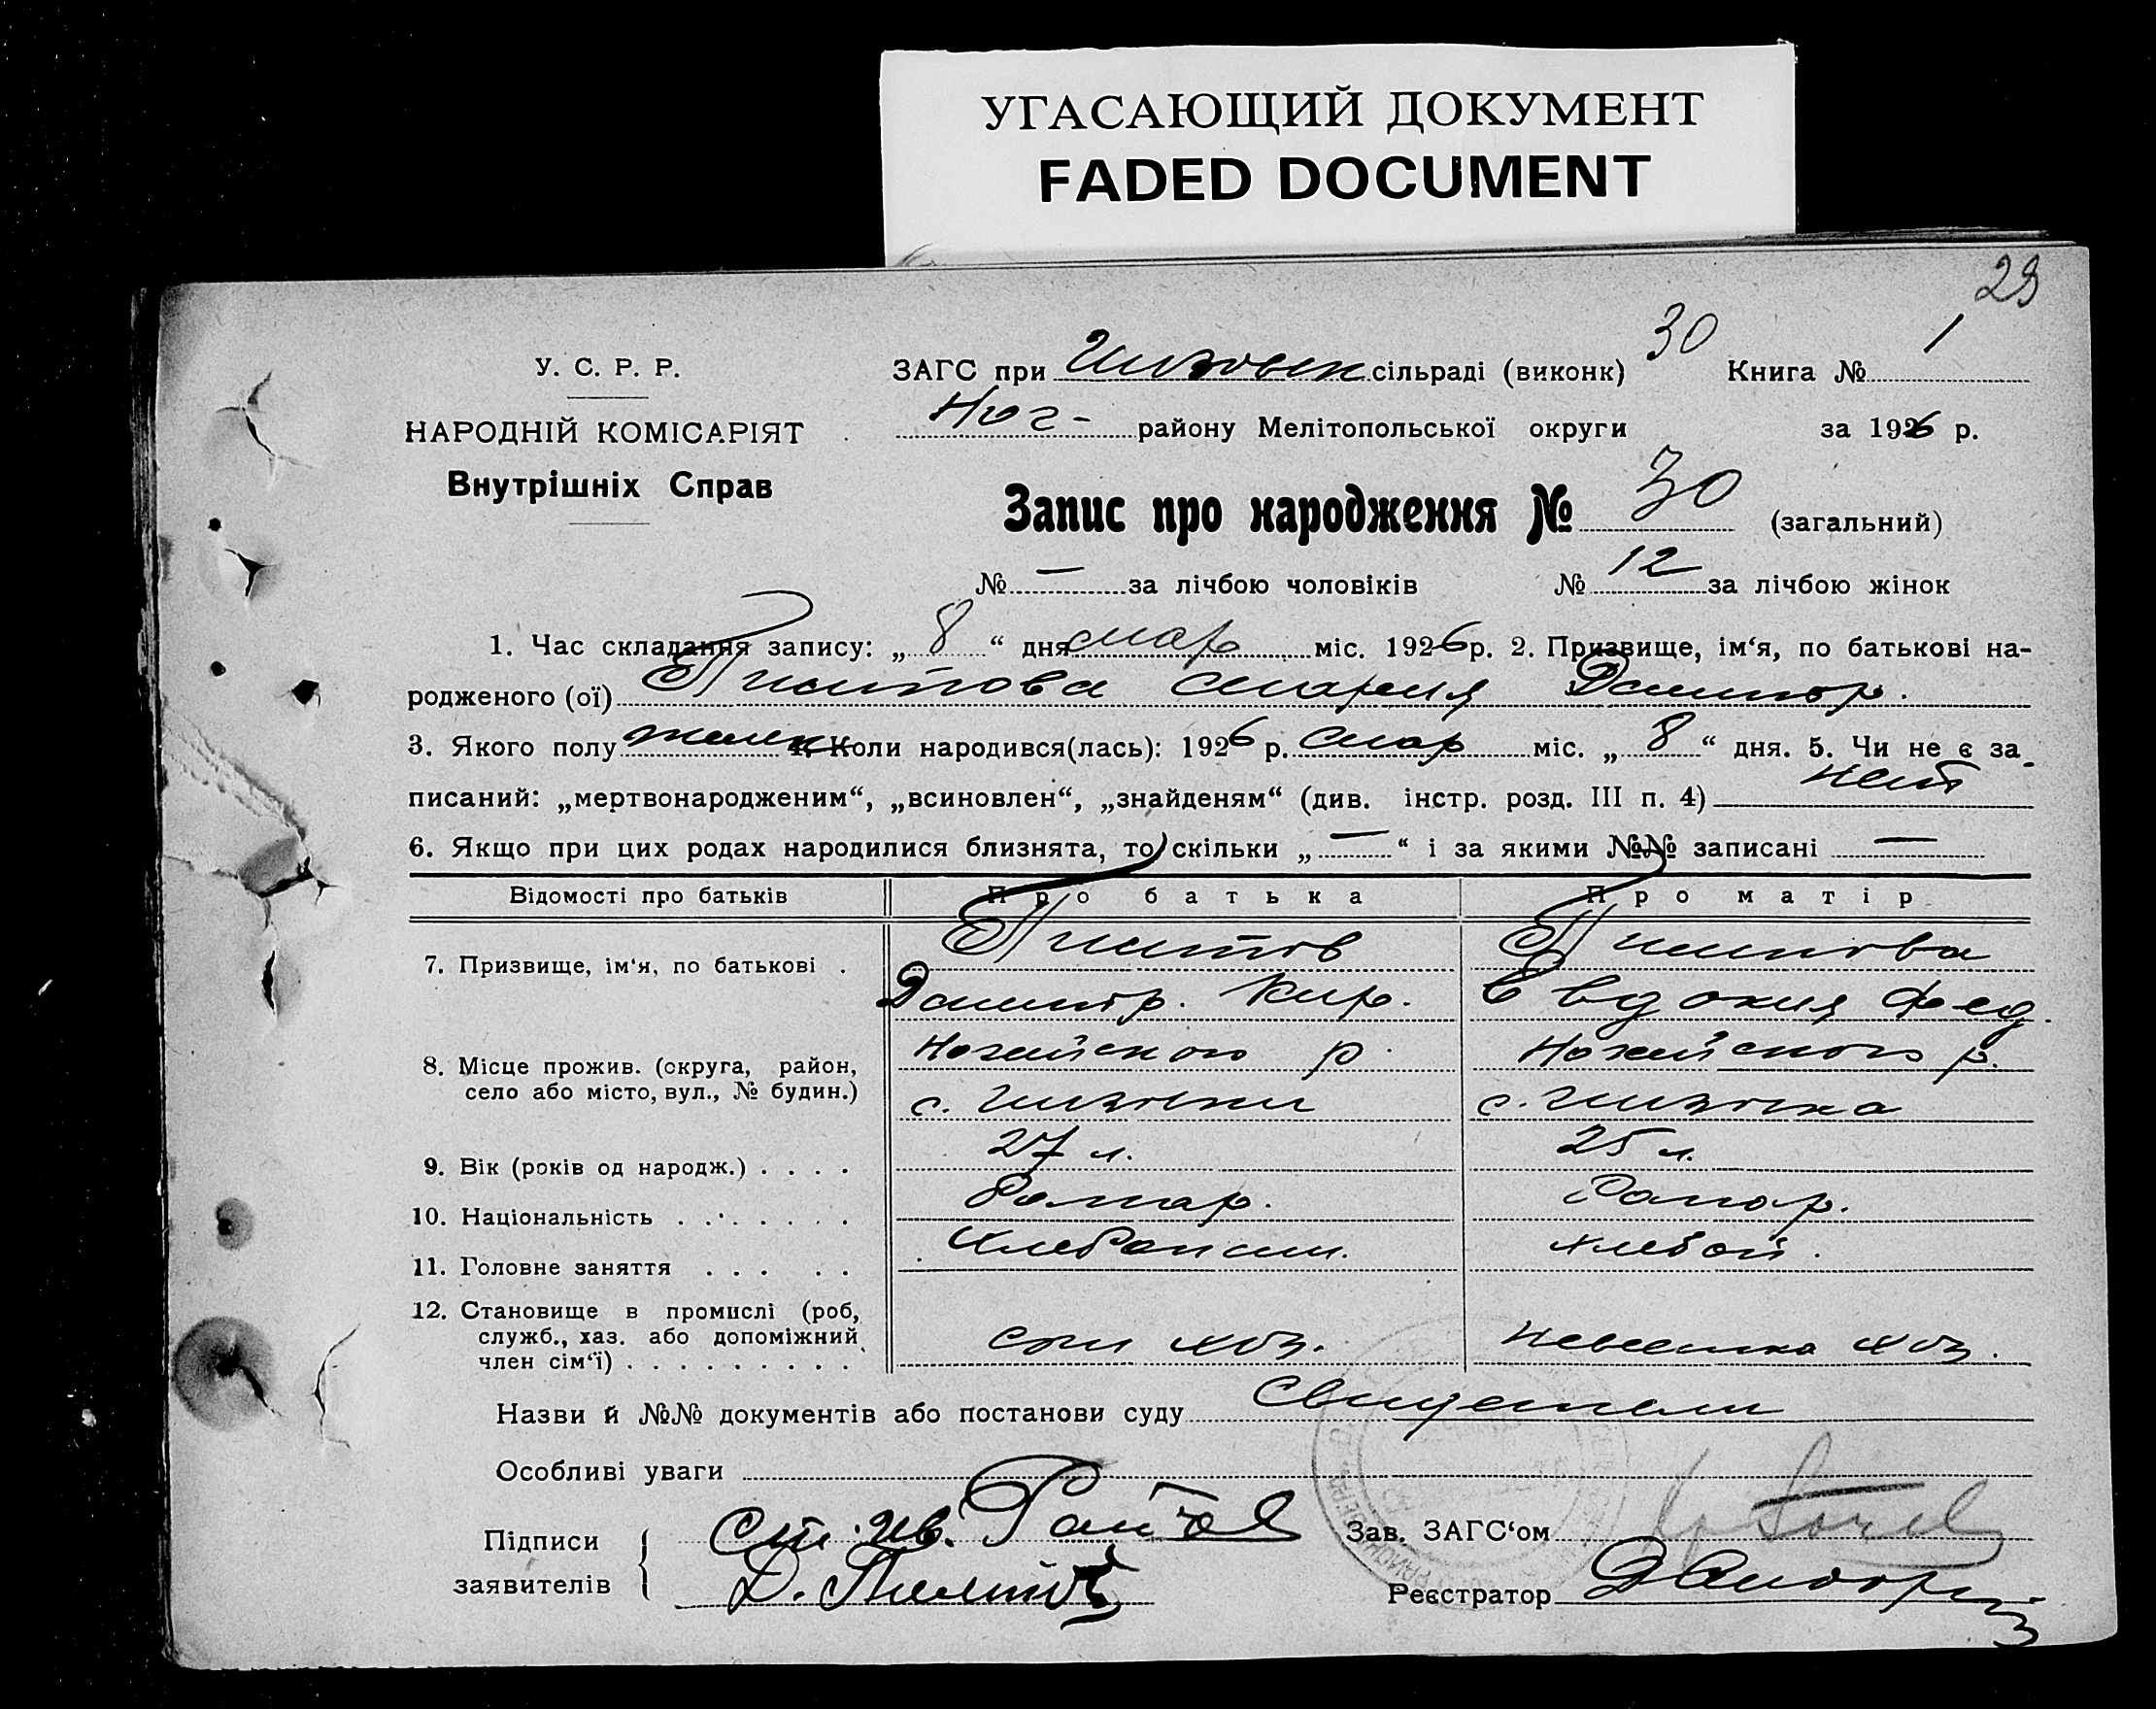 УГАСАЮЩИЙ ДОКУМЕНТ
FADED DOCUMENT
29
У. С. Р. Р.
НАРОДНІЙ КОМІСАРІЯТ
Внутрішніх Справ
ЗАГС при сільраді (виконк) 30 Книга № 1
Ног- району Мелітопольської округи за 1926 р.
Запис про народження № 30 (загальний)
№ — за лічбою чоловіків № 12 за лічбою жінок
1. Час складання запису: „ 8 “ дня мар міс. 1926 р. 2. Призвище, ім‘я, по батькові на-
родженого (ої) Мария Димитр.
3. Якого полу женск 4. Коли народився(лась): 1926 р. мар міс. „ 8 “ дня. 5. Чи не є за-
писаний: „мертвонародженим“, „всиновлен“, „знайденям“ (див. інстр. розд. III п. 4) нет
6. Якщо при цих родах народилися близнята, то скільки „ — “ і за якими №№ записані —
Відомості про батьків Про батька Про матір
7. Призвище, ім‘я, по батькові .
Димитр. Кир. Евдокия Фед.
8. Місце прожив. (округа, район, село або місто, вул., № будин.)
Ногайского р. Ногайского р.
с. с.
9. Вік (років од народж.) . . . . 27 л. 25 л.
10. Національність . . . . . . . Болгар. Болгар.
11. Головне заняття . . . . . Хлебопаш. хлебоп.
12. Становище в промислі (роб, служб., хаз. або допоміжний член сім‘ї) . . . . . . . . . сын хоз. невестка хоз.
Назви й №№ документів або постанови суду Свидетели
Особливі уваги
Підписи заявителів
Д.
Зав. ЗАГС‘ом
Реєстратор